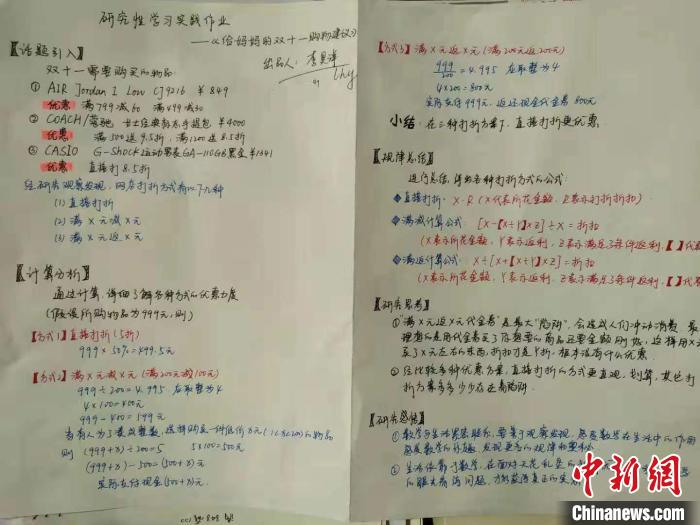 研究性学习实践作业
——《给妈妈的双十一购物建议》
出品人：李昊泽
【话题引入】
双十一需要购买的物品：
① AIR Jordan 1 Low CJ9216 ¥849
优惠 满799减60 满499减30
② COACH/蔻驰 手提包 ¥4000
优惠 满500送9.5折，满1200送8.5折
③ CASIO G-SHOCK运动男表GA-110GB黑金¥1341
优惠 直接打8.5折
经研究观察发现，网店打折方式有以下几种
(1) 直接打折
(2) 满X元减X元
(3) 满X元返X元
【计算分析】
通过计算，详细了解各种方式的优惠力度
(假设所购物品为999元，则)
【方式1】直接打折(5折)
999×50%=499.5元
【方式2】满X元减X元(满200元减100元)
999÷200=4.995 在取整为4
4×100=400元
999-400=599元
若有人为了凑成整数，选择购买一件低价为元(1≤≤200)的物品
则 (999+x)÷200=5 5×100=500元
(999+x)-500=(500+x)元
实际支付现金(500+x)元.
【方式3】满X元返X元(满200元返200元)
999/200=4.995 在取整为4
4×200=800元
实际支付999元，返还现金代金券800元
小结：在三种打折方案下，直接打折更优惠
【规律总结】
进行总结，得出各种打折方式的公式：
◆直接打折：X·R(X代表所花金额，R表示打折折扣)
◆满减计算公式：[X-【X÷Y】×Z]÷X=折扣
(X表示所花金额，Y表示返利，Z表示满足了每件返利，【】代表
◆满返计算公式：X÷[X+【X÷Y】×Z]=折扣
(X表示所花金额，Y表示返利，Z表示满足了每件返利，【】代
【研究思考】
①"满X元返X元代金券"是最大"陷阱"，会造成人们冲动消费，最
理想的是用代金券买了你想要的商品还要金额刚好，这样用X元
买了X元左右的东西，折扣力是折，根本没有什么优惠.
②经比较多种优惠方案，直接打折的方式更直观，划算，其它打
折方案多多少少存在着陷阱.
【研究感悟】
①数学与生活紧密联系，要善于观察发现，感受数学在生活中的作用
感受数学的乐趣，发现更多的规律和奥秘.
②生活依靠于数学，在面对天花乱坠的
的眼光看待问题，才能获得真正的实惠
中新网
WWW.CHINANEWS.COM